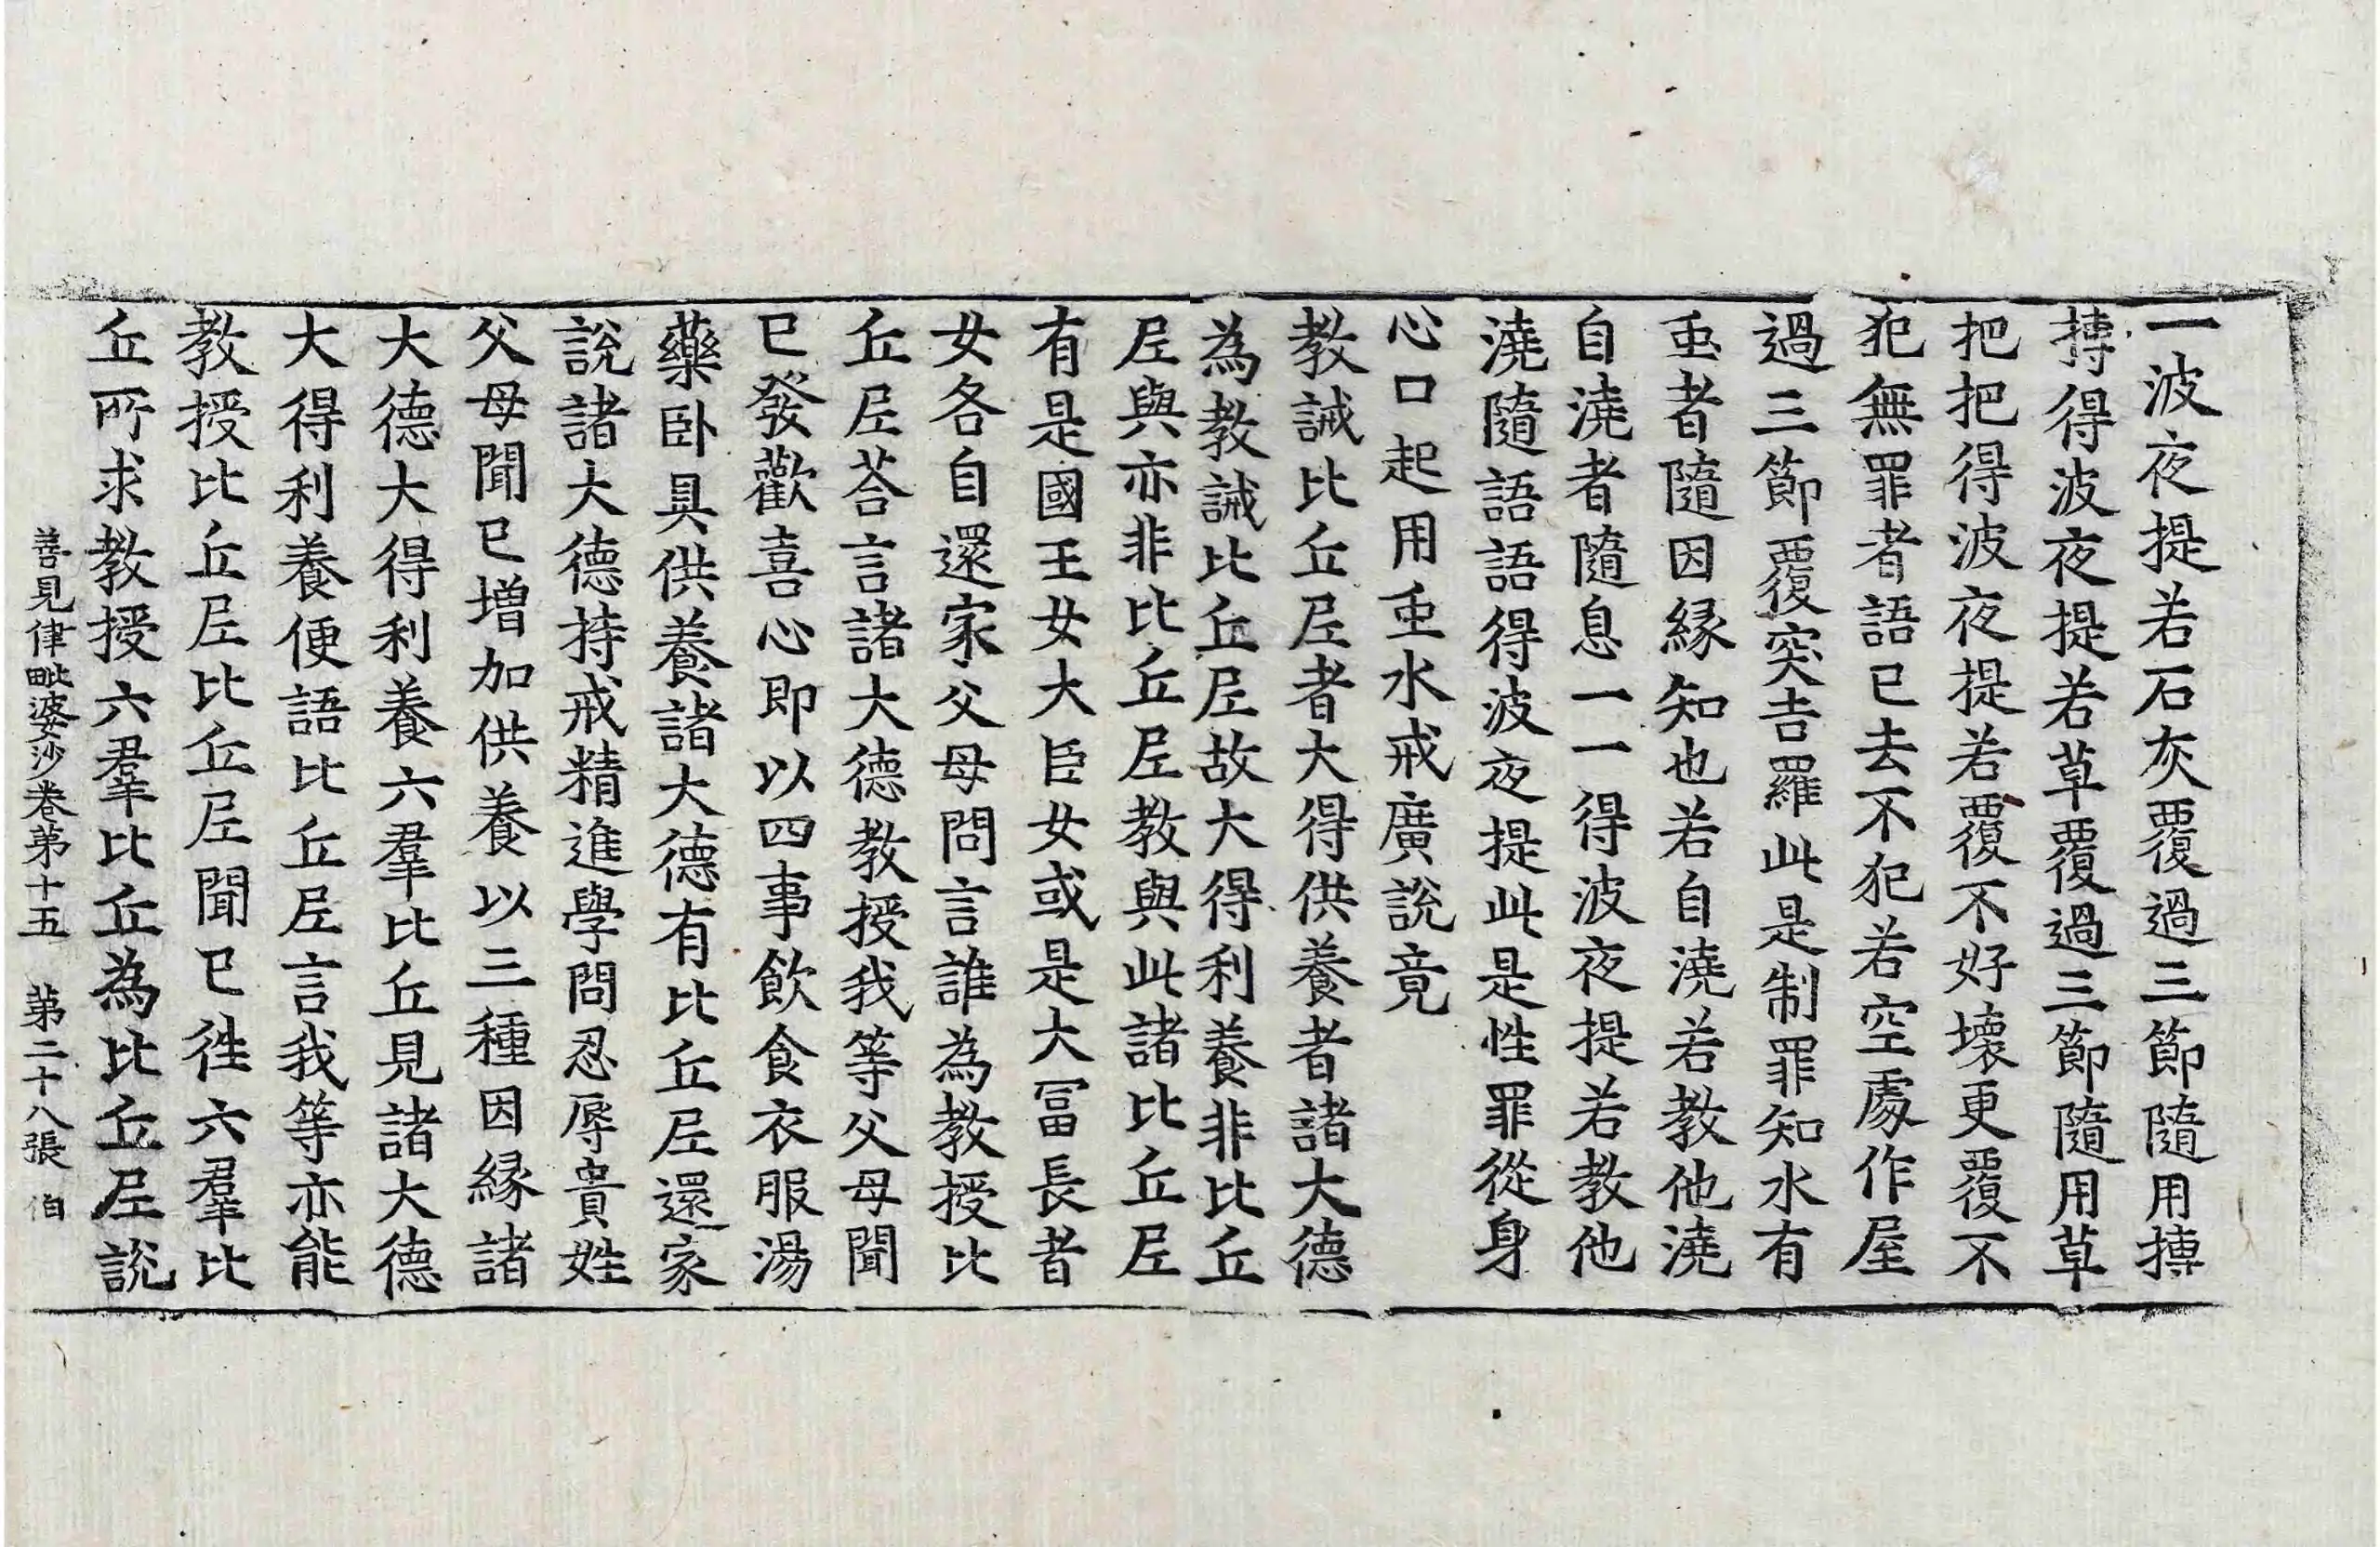 一波夜提若石灰覆過三節隨用摶
摶得波夜提若草覆過三節隨用草
把把得波夜提若覆不好壞更覆不
犯無罪者語已去不犯若空處作屋
過三節覆突吉羅此是制罪知水有
虫者隨因緣知也若自澆若教他澆
自澆者隨息一一得波夜提若教他
澆隨語語得波夜提此是性罪從身
心口起用虫水戒廣說竟
教誡比丘尼者大得供養者諸大德
為教誡比丘尼故大得利養非比丘
尼與亦非比丘尼教與此諸比丘尼
有是國王女大臣女或是大冨長者
女各自還家父母問言誰為教授比
丘尼荅言諸大德教授我等父母聞
已發歡喜心即以四事飲食衣服湯
藥卧具供養諸大德有比丘尼還家
說諸大德持戒精進學問忍辱貴姓
父母聞已增加供養以三種因緣諸
大德大得利養六羣比丘見諸大德
大得利養便語比丘尼言我等亦能
教授比丘尼比丘尼聞已徃六羣比
丘所求教授六羣比丘為比丘尼說
善見律毗婆沙卷第十五 第二十八張 伯